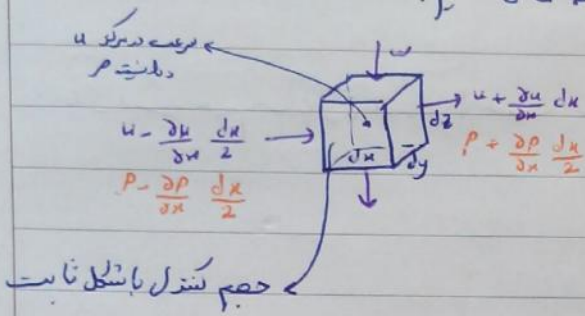 سرعت در مرکز u
دانسیته ρ
u - ∂u/∂x dx/2
ρ - ∂ρ/∂x dx/2
u + ∂u/∂x dx
ρ + ∂ρ/∂x dx/2
dz
dx
dy
حجم کنترل با شکل ثابت